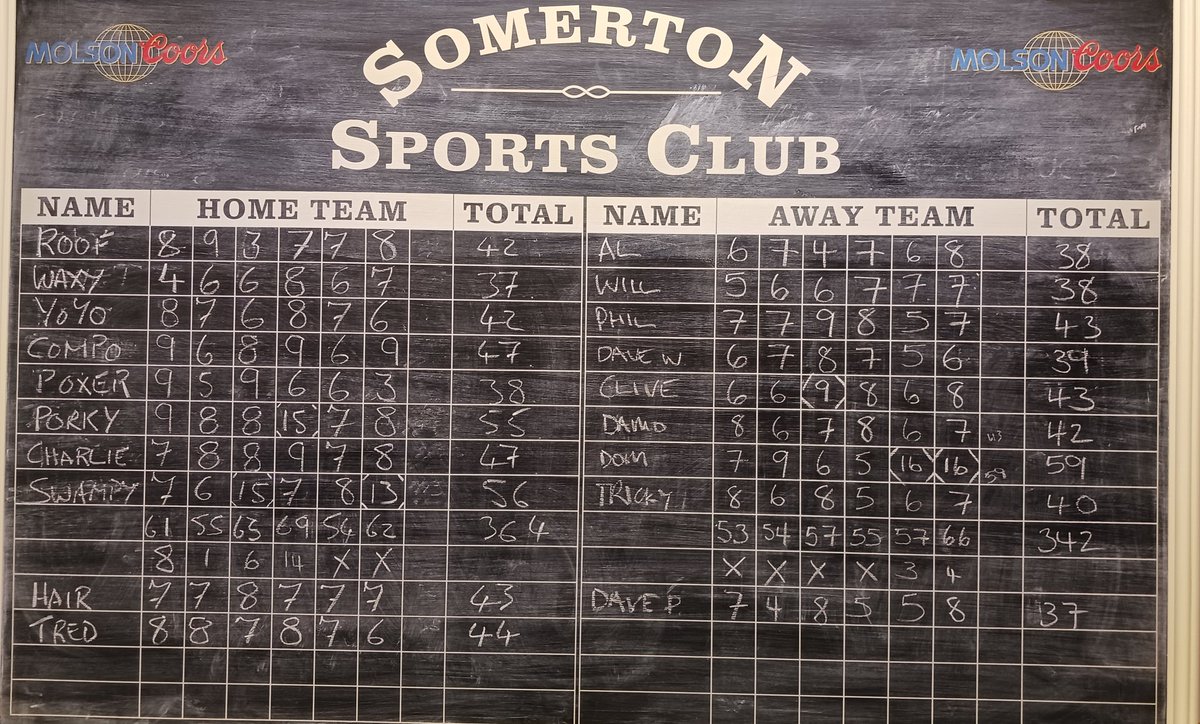 MOLSON Coors SOMERTON MOLSON Coors
SPORTS CLUB
NAME HOME TEAM TOTAL NAME AWAY TEAM TOTAL
ROOF 8 9 3 7 7 8 42 AL 6 7 4 7 6 8 38
WAXY 4 6 6 8 6 7 37 WILL 5 6 6 7 7 7 38
YOYO 8 7 6 8 7 6 42 PHIL 7 7 9 8 5 7 43
COMPO 9 6 8 9 6 9 47 DAVE W 6 7 8 7 5 6 39
POXER 9 5 9 6 6 3 38 CLIVE 6 6 9 8 6 8 43
PORKY 9 8 8 15 7 8 55 DAMO 8 6 7 8 6 7 42
CHARLIE 7 8 8 9 7 8 47 DOM 7 9 6 5 16 16 59 59
SWAMPY 7 6 15 7 8 13 56 TRICKY 8 6 8 5 6 7 40
61 55 63 69 54 62 364 53 54 57 55 57 66 342
8 1 6 14 X X X X X X 3 4
HAIR 7 7 8 7 7 7 43 DAVE P 7 4 8 5 5 8 37
TRED 8 8 7 8 7 6 44